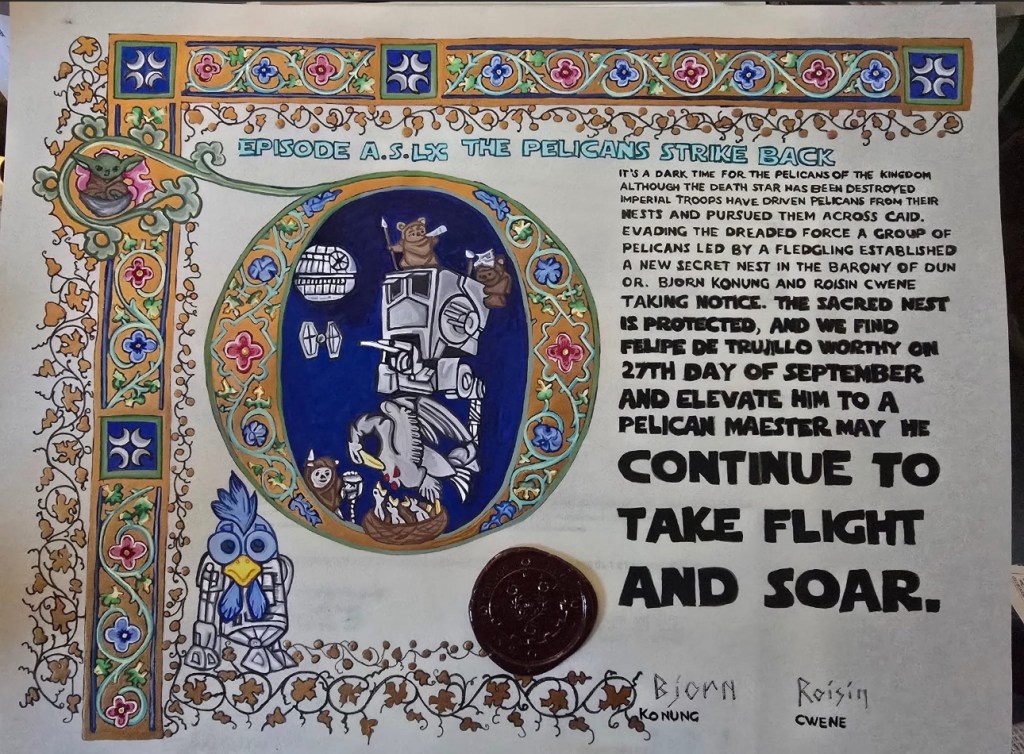 EPISODE A.S.LX THE PELICANS STRIKE BACK
IT'S A DARK TIME FOR THE PELICANS OF THE KINGDOM
ALTHOUGH THE DEATH STAR HAS BEEN DESTROYED
IMPERIAL TROOPS HAVE DRIVEN PELICANS FROM THEIR
NESTS AND PURSUED THEM ACROSS CAID.
EVADING THE DREADED FORCE A GROUP OF
PELICANS LED BY A FLEDGLING ESTABLISHED
A NEW SECRET NEST IN THE BARONY OF DUN
OR. BJORN KONUNG AND ROISIN CWENE
TAKING NOTICE. THE SACRED NEST
IS PROTECTED, AND WE FIND
FELIPE DE TRUJILLO WORTHY ON
27TH DAY OF SEPTEMBER
AND ELEVATE HIM TO A
PELICAN MAESTER MAY HE
CONTINUE TO
TAKE FLIGHT
AND SOAR.
Bjorn Roisin
KONUNG CWENE